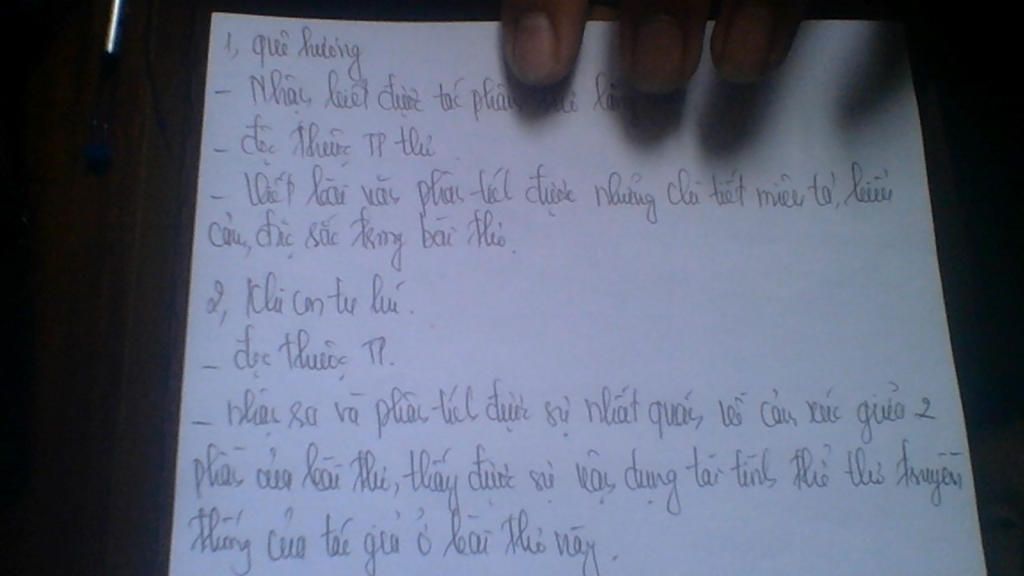 1, quê hương
- Nhận biết được tác phẩm
- đọc thuộc TP thơ
- Viết bài văn phân tích được những chi tiết miêu tả, biểu
cảm, đặc sắc trong bài thơ.
2, Khi con tu hú.
- đọc thuộc TP.
- nhận ra và phân tích được sự nhất quán về cảm xúc giữa 2
phần của bài thơ, thấy được sự vận dụng tài tình thể thơ truyền
thống của tác giả ở bài thơ này.